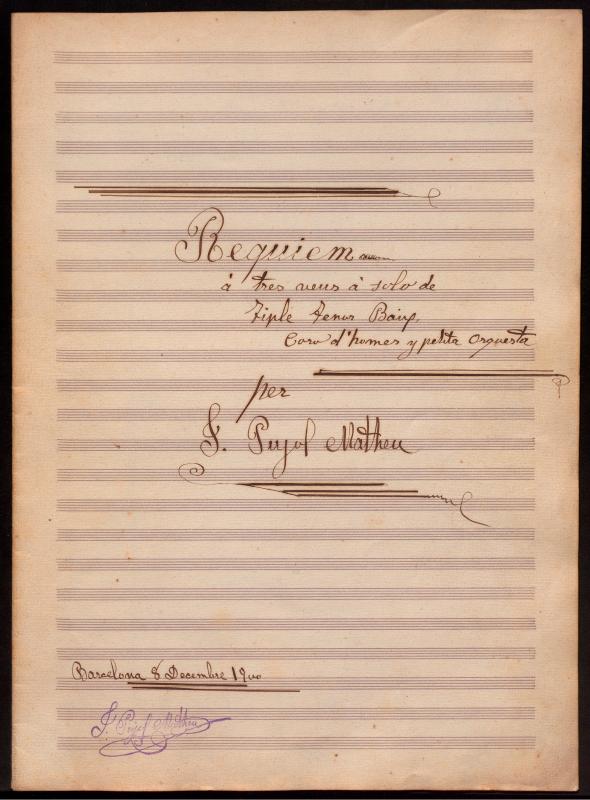 Requiem
à tres veus à solo de
Tiple Tenor Baix,
Coro d'homes y petita orquesta
per
F. Pujol Matheu
Barcelona 8 Decembre 1900
F. Pujol Matheu